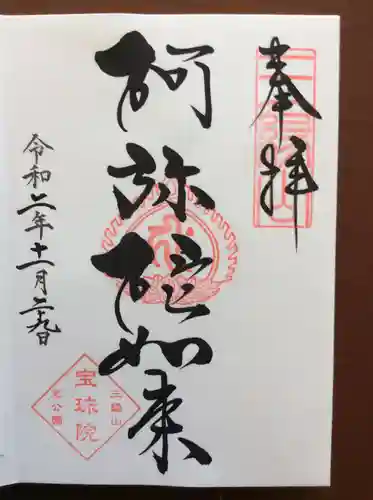 奉拝
阿弥陀如来
令和二年十一月二十九日
三縁山
宝珠院
芝公園